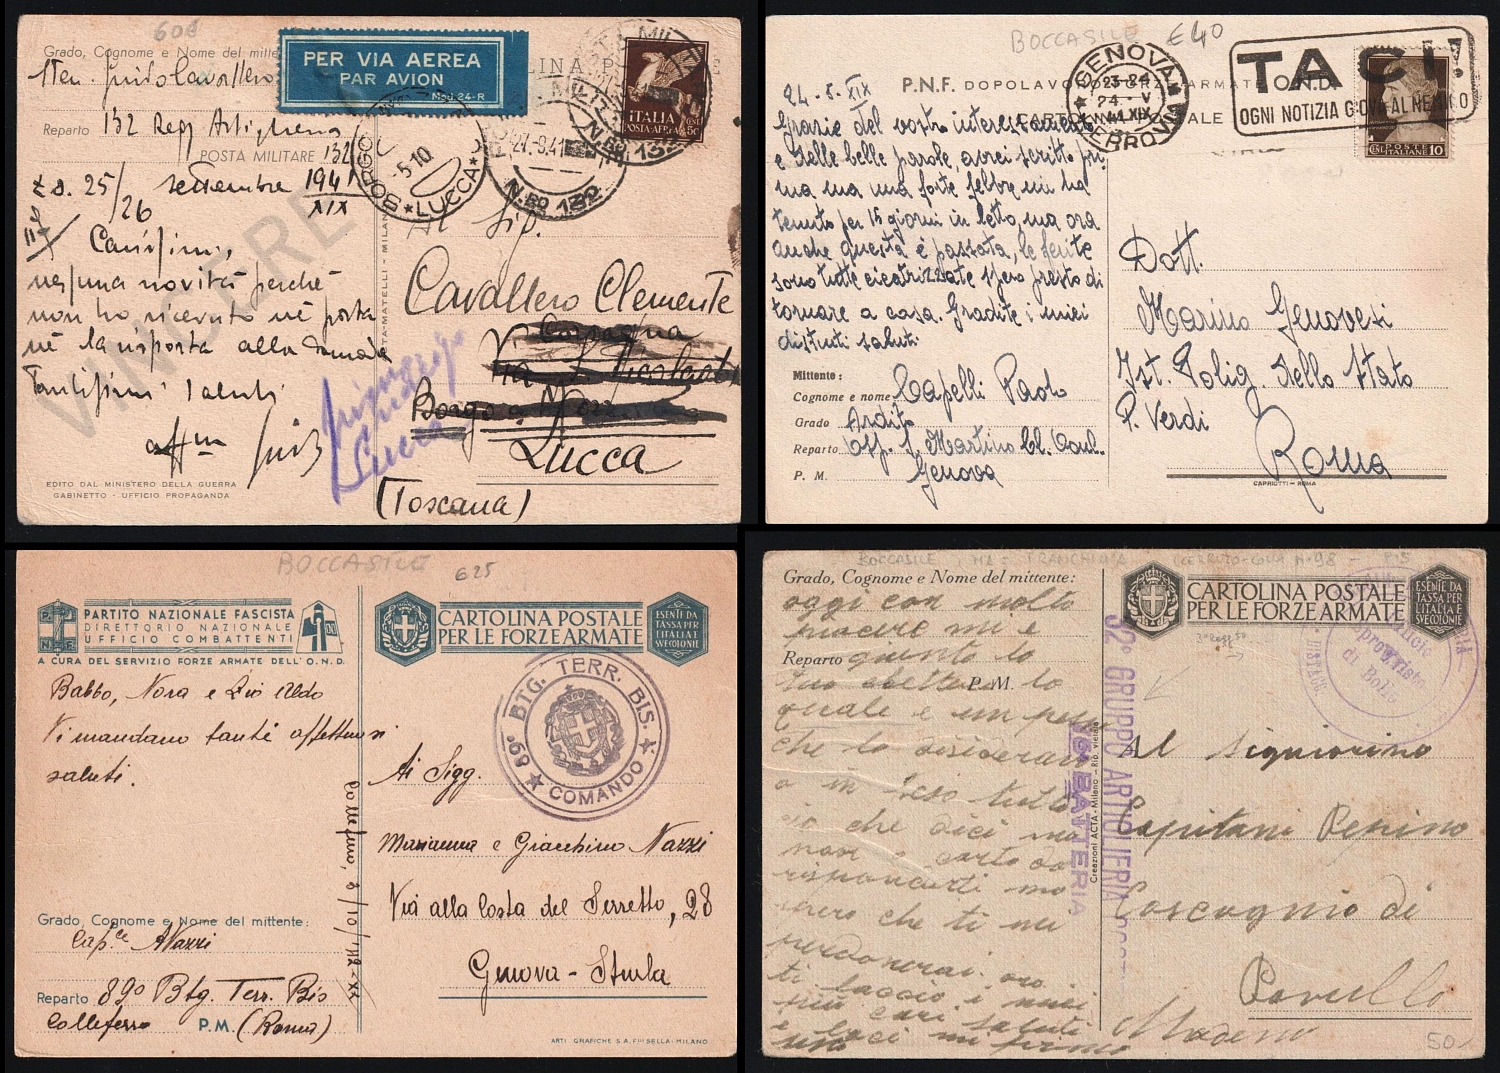 60€
Grado, Cognome e Nome del mitte
PER VIA AEREA
PAR AVION
Mod. 24-R
LINA P
E
ITALIA
POSTA-AEREA
Sten. Guido Cavallero
Reparto 132 Regg Artiglieria
POSTA MILITARE 132
BORGO
5.10
LUCCA
27.9.41
N.RO 132
z.o. 25/26 settembre 1941
XIX
VINCERE
Carissimi,
nessuna novità perché
non ho ricevuto né posta
né la risposta alla
Tantissimi saluti
aff.mo Guido
EDITO DAL MINISTERO DELLA GUERRA
GABINETTO - UFFICIO PROPAGANDA
Al Sig.
Cavallero Clemente
Lucca
(Toscana)
BOCCASILE €40
P.N.F. DOPOLAVORO FORZE ARMATE O.N.D.
CARTOLINA POSTALE
GENOVA
23-24
24 V
41 XIX
FERROVIA
TACI!
OGNI NOTIZIA GIOVA AL NEMICO
POSTE ITALIANE 10
24-5-XIX
Grazie del vostro interessamento
e delle belle parole, avrei scritto pri
ma ma una forte febbre mi ha
tenuto per 15 giorni in letto, ma ora
anche questa è passata, le ferite
sono tutte cicatrizzate spero presto di
tornare a casa. Gradite i miei
distinti saluti
Mittente:
Cognome e nome Capelli Paolo
Grado Ardito
Reparto Osp. S. Martino
P. M. Genova
Dott.
Marino Genovesi
Ist. Polig. dello Stato
P. Verdi
Roma
CAPRIOTTI - ROMA
BOCCASILE 625
P.N.F.
PARTITO NAZIONALE FASCISTA
DIRETTORIO NAZIONALE
UFFICIO COMBATTENTI
A CURA DEL SERVIZIO FORZE ARMATE DELL'O.N.D.
CARTOLINA POSTALE
PER LE FORZE ARMATE
ESENTE DA
TASSA PER
L'ITALIA E
SVE COLONIE
89° BTG. TERR. BIS.
COMANDO
Babbo, Nora e Zio Aldo
Vi mandano tanti affettuosi
saluti.
Colleferro, 8/10/'42-XX
Ai Sigg.
Marianna e Giacchino Nazzi
Via alla Costa del Serretto, 28
Genova - Sturla
Grado, Cognome e Nome del mittente:
Nazzi
Reparto 89° Btg. Terr. Bis
Colleferro P.M. (Roma)
ARTI GRAFICHE S.A. F.LLI SELLA-MILANO
BOCCASILE
FRANCHIGIA
Grado, Cognome e Nome del mittente:
CARTOLINA POSTALE
PER LE FORZE ARMATE
ESENTE DA
TASSA PER
L'ITALIA E
SVE COLONIE
oggi con molto
piacere mi è
Reparto
P. M.
quale è un
che lo desideravo
ciò che dici
spero che ti
perdonerai. ora
ti faccio i miei
più cari saluti
e baci mi firmo
32° GRUPPO ARTIGLIERIA
BATTERIA
Creazioni ACTA - Milano - Rip. vietata
Ufficio
di Bolli
Al Signorino
Capitani Pepino
Coscogno di
Pavullo
Modena
50